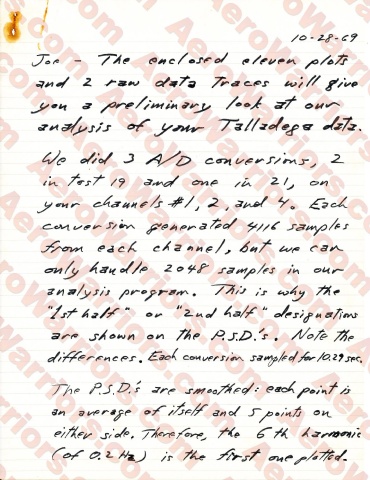 10-28-69
Joe - The enclosed eleven plots
and 2 raw data traces will give
you a preliminary look at our
analysis of your Talladega data.
We did 3 A/D conversions, 2
in test 19 and one in 21, on
your channels #1, 2, and 4. Each
conversion generated 4116 samples
from each channel, but we can
only handle 2048 samples in our
analysis program. This is why the
"1st half" or "2nd half" designations
are shown on the P.S.D.'s. Note the
differences. Each conversion sampled for 10.29 sec.
The P.S.D.'s are smoothed: each point is
an average of itself and 5 points on
either side. Therefore, the 6th harmonic
(of 0.2 Hz) is the first one plotted.
AeroWarriors.com